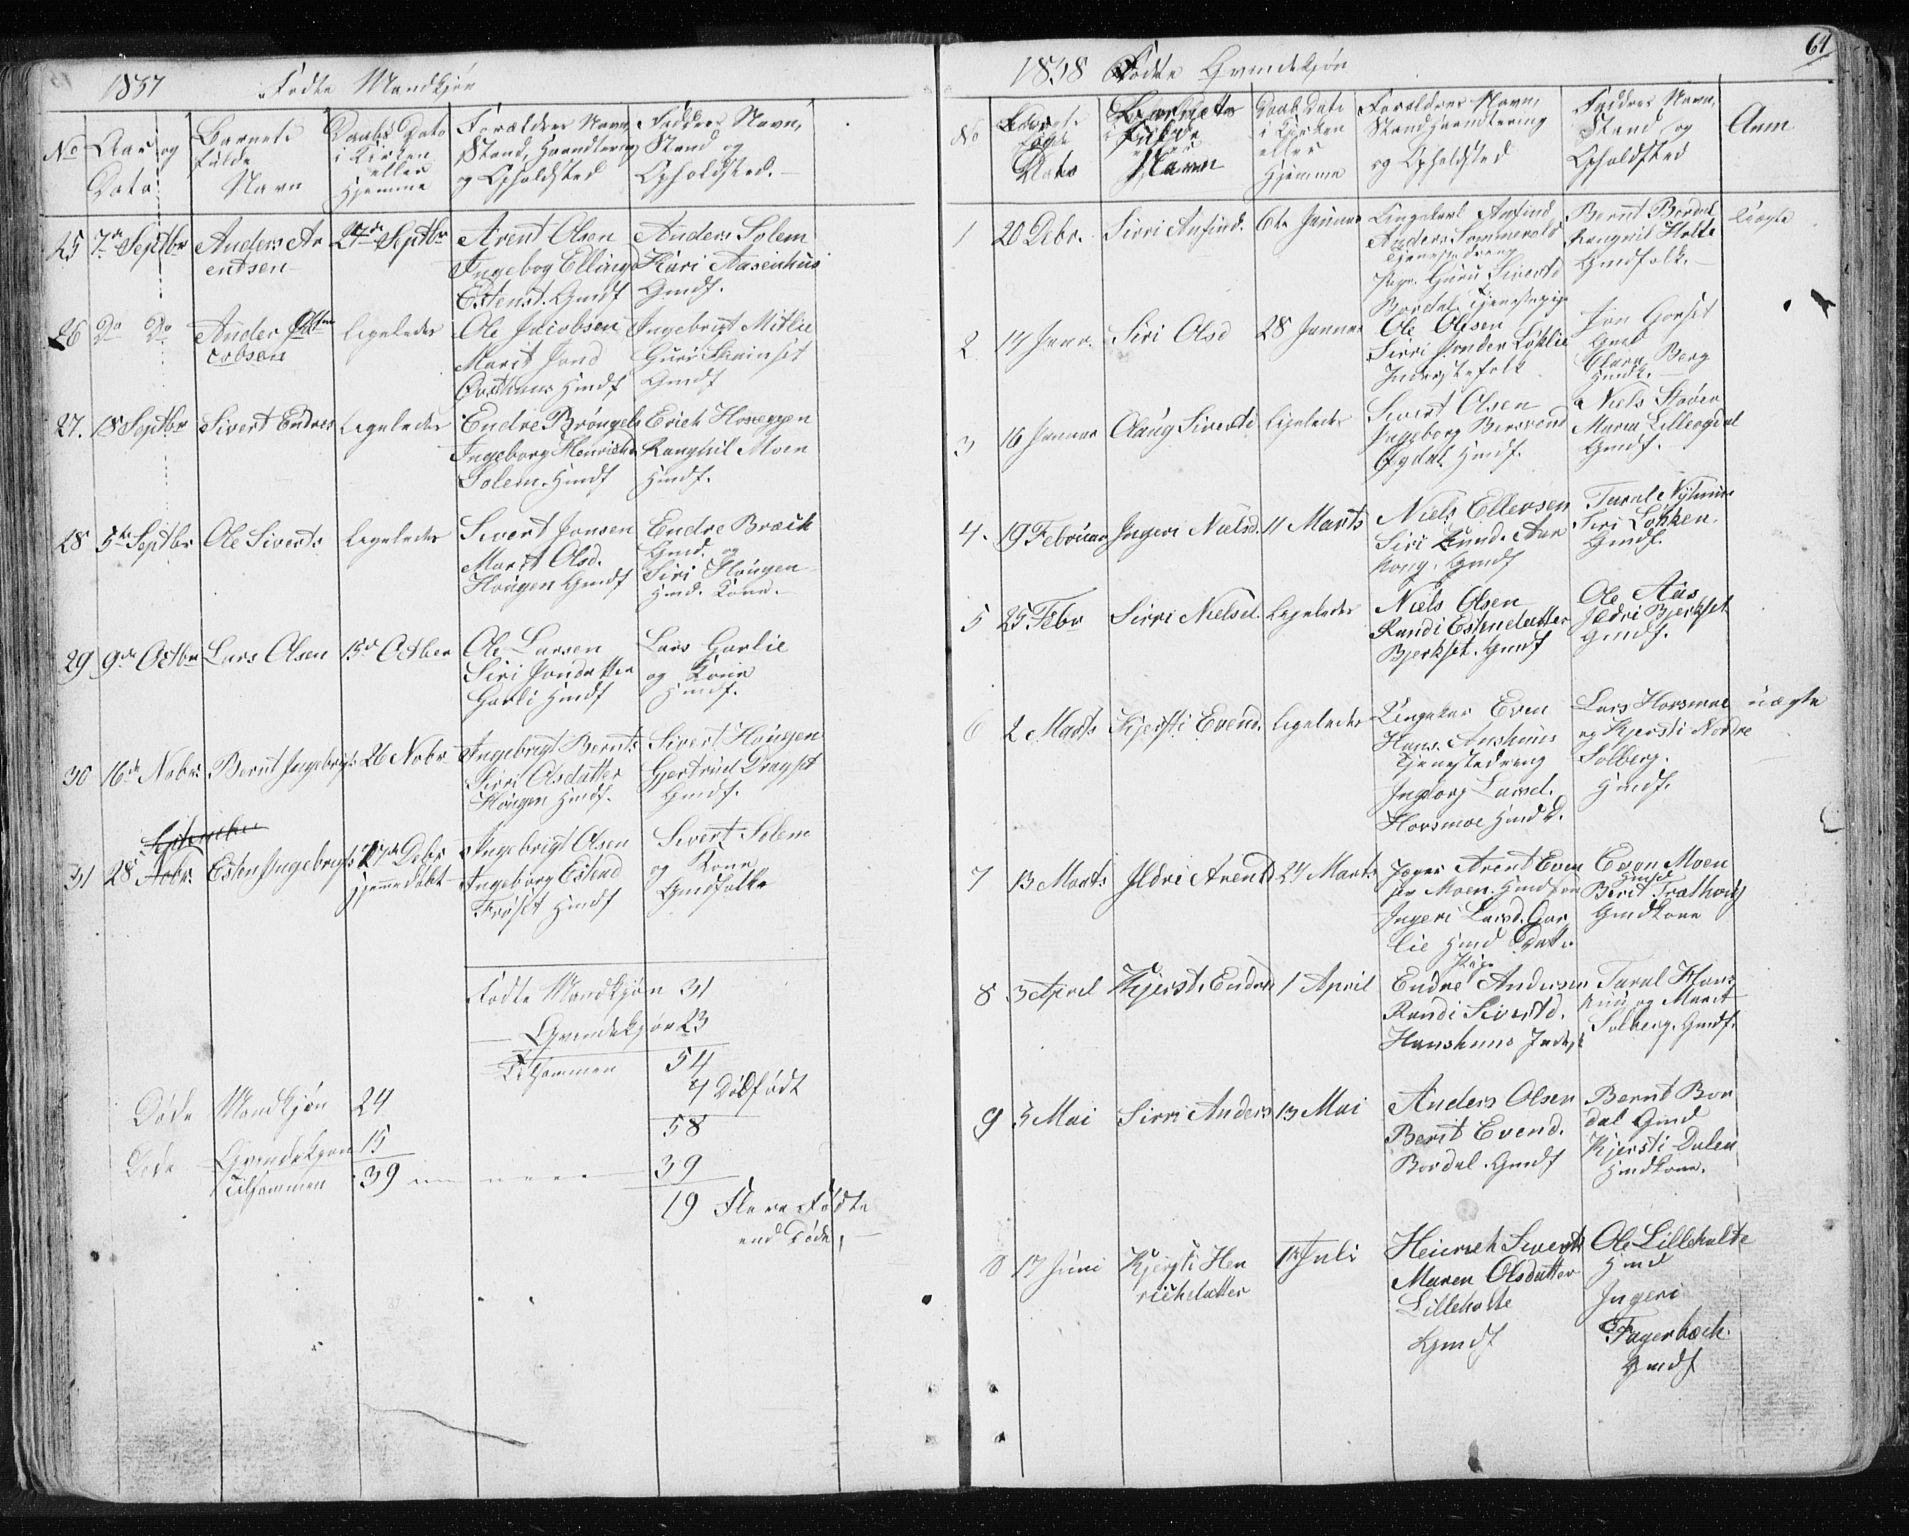 1837 Fødte Mandkjøn
No Aar og Dato
Barnets fulde Navn
Daabs Dato i Kirken eller Hjemme
Forældres Navn, Stand, Haandtering og Opholdsted
Fadders Navn, Stand og Opholdsted.
25 7de Septbr Anders Arentsen 24de Septbr
Arent Olsen
Ingebog Ellingsd
Estenst. Gmdf
Anders Solem
Kari Aasenhus
Gmdf.
26 Do Do Ander Jacobsen Olsen Ligeledes
Ole Jacobsen
Marit Jond
Hmdf
Ingebrigt Mitlie
Guri Skeinset
Gmdf
27. 18 Septbr Sivert Endres Ligeledes
Endre Brøngels
Ingeborg Henrichsd
Solem. Hmdf
Erich Hoseggen
Rangnil Moen
Hmdf.
28 5te Septbr Ole Siverts. Ligeledes
Sivert Jonsen
Marit Olsd.
Hougen Gmdf
Endre Bræck
Gmd. og
Siri Hougen
Hmd. Kone.
29 9de Octbr Lars Olsen 15de Octber
Ole Larsen
Siri Jonsdatter
Garli Hmdf
Lars Garlie
og Kone
Hmdf.
30 16de Nobr. Bernt Ingebrigts 26 Nobr
Ingebrigt Bernts
Sirri Olsdatter
Hougen Hmdf.
Sivert Hougen
Gjertrud Drogset
Gmdf.
31 28 Nobr. Esten Ingebrigts 17de Debr
hjemmedøbt
Ingebrigt Olsen
Ingeborg Estend
Frøset Hmdf
Sivert Solem
og Kone
Gmdfolk
Fødte Mandkjøn 31
— Qvindekjøn 23
Tilsammen 54
4 Dødfødt
58
Døde Mandkjøn 24
Døde Qvindekjøn 15
Tilsammen 39
39
19 Flere Fødte
end Døde,
64
1838 Fødte Qvindekjøn
No
Dato
Barnets fulde Navn
Daabs Dato i Kirken eller Hjemme
Forældres Navn, Stand Haandtering og Opholdsted
Faddres Navn, Stand og Opholdsted
Anm
1 20 Debr. Sirri Anfind. 6te Januar
Ungekarl Anfind
Anders
Tjenestedreng
Pige. Guru Sivertd
Bordal Tjenestepige
Bernt Bordal
Rangnil Holte
Gmdfolk.
Uægte
2 14 Janr. Siri Olsd 28 Januar
Ole Olesen
Sirri Løklie
Inderstefolk
Jon Gorset
Gmd
Berg
Hmdk.
3 16 Januar Olaug Siverts Ligeledes
Sivert Olsen
Ingeborg
Øgdal. Hmdf.
Niels Støver
Maria Lilleøgdal
Gmdf.
4. 19 Februar Ingeri Nielsd. 11 Marts
Niels Ellevsen
Siri Aar
Gmdf
Taral
Siri Løkken.
Gmdf.
5 25 Febr Sirri Nielsd. Ligeledes
Niels Olsen
Randi Estendatter
Bjerkset. Gmdf
Ole Aas
Ildri Bjerkset
Gmdf.
6 2 Marts Kjersti Evend. Ligeledes
Ungekar Even
Hans.
Tjenestedreng
Ingborg Larsd.
Horsmoe Hmd D.
Lars Horsmoe
og Kjersti Nordre
Solberg.
Hmdf.
uægte
7 13 Marts Ildri Arend 24 Marts
Arent Even
sen Moen. Hmd søn
Ingeri Larsd. Gar
lie Hmd Datt.
Even Moen
Hmd
Berit Træthoug
Gmdkone
8 3 April Kjerst. Endre 1 April
Endre Andersen
Randi Sivertd.
Hanshuus Inderst
Taral Hans
huus og Marit
Solberg. Gmdf.
9 5 Mai Sirri Anders 13 Mai
Anders Olsen
Berit Evend.
Bordal. Gmdf
Bernt Bor
dal Gmd
Kjersti Dalen
Hmdkone.
0 17 Juni Kjersti Hen
richsdatter
1te Juli
Heinrich Siverts
Maren Olsdatter
Lilleholte
Gmdf
Ole Lilleholte
Hmd
Ingeri
Fagerbæch.
Gmdf